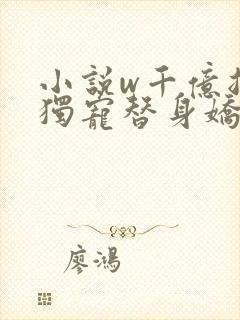 小說w千億
獨寵替身嬌
廖鴻